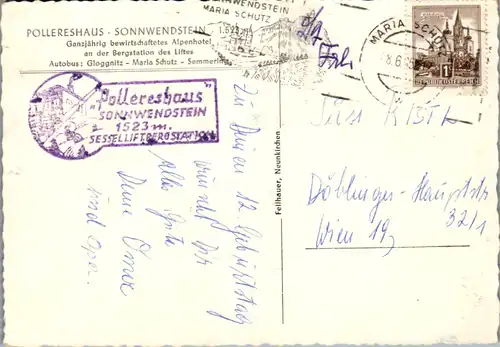 POLLERESHAUS · SONNWENDSTEIN
Ganzjährig bewirtschaftetes Alpenhotel
an der Bergstation des Liftes
Autobus: Gloggnitz - Maria Schutz - Semmering
SONNWENDSTEIN
MARIA SCHUTZ
1523m
MARIA SCHUTZ
REPUBLIK ÖSTERREICH
"Pollereshaus"
SONNWENDSTEIN
1523 m.
SESSELLIFTBERGSTATION
Zu Deinen 12. Geburtstag
wünscht Dir
alles Gute
Deine Oma
und Opa.
Feilhauer, Neunkirchen
Döblinger-Hauptstr
32/1
Wien 19,